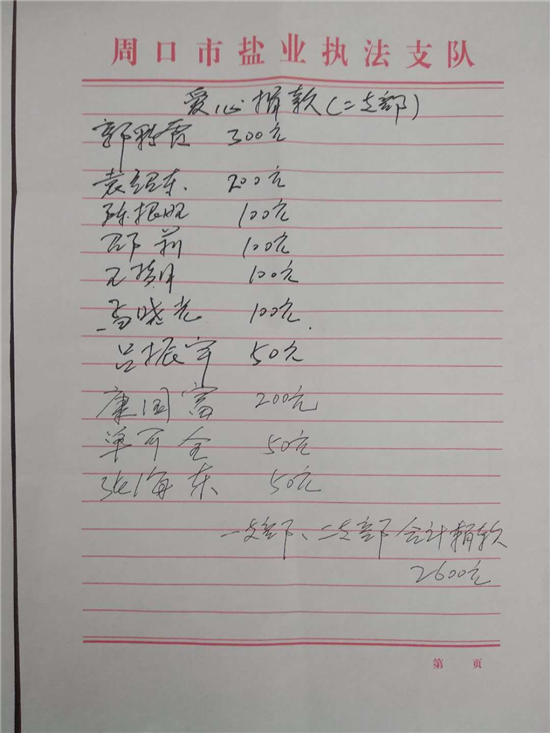 周口市盐业执法支队
爱心捐款(二支部)
郭 霞 300元
袁绍东. 200元
陈根旺 100元
邵莉 100元
100元
高晓光 100元.
吕振宇 50元
康国富 200元
单可全 50元
张海东 50元
一支部、二支部合计捐款
2600元
第 页